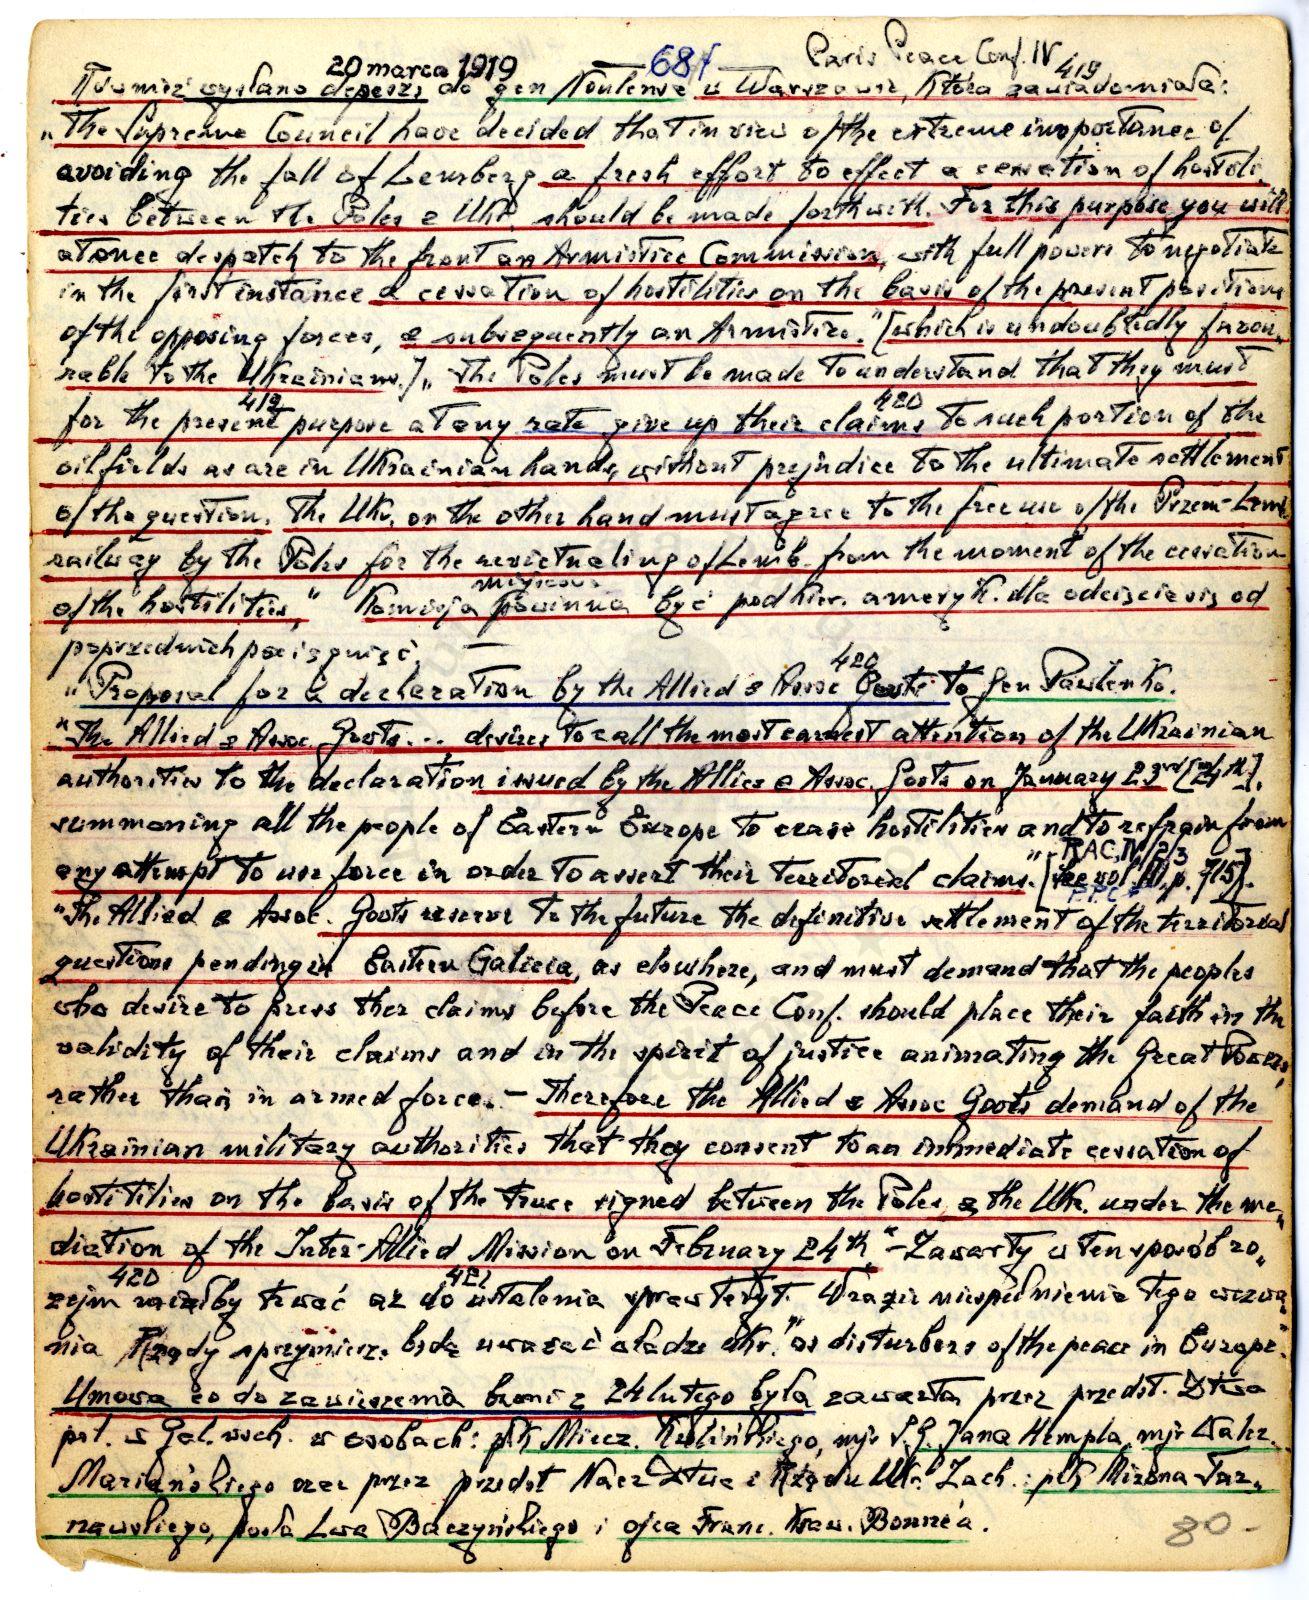 20 marca 1919 — 68f — Paris Peace Conf. IV 419
Również wysłano depeszę do gen Noulensa w Warszawie, która zawiadomiała:
"The Supreme Council have decided that in view of the extreme importance of
avoiding the fall of Lemberg a fresh effort to effect a cessation of hostili-
ties between the Poles & Ukr. should be made forthwith. For this purpose you will
at once despatch to the front an Armistice Commission, with full powers to negotiate
in the first instance a cessation of hostilities on the basis of the present positions
of the opposing forces, & subsequently an Armistice." [which is undoubtedly favou-
rable to the Ukrainians.] "The Poles must be made to understand that they must
419 420
for the present purpose at any rate give up their claims to such portion of the
oilfields as are in Ukrainian hands, without prejudice to the ultimate settlement
of the question. The Ukr. on the other hand must agree to the free use of the Przem-Lemb.
railway by the Poles for the revictualing of Lemb. from the moment of the cessation
of the hostilities." Komisja powinna być pod kier. ameryk. dla odcięcia się od
poprzednich pociągnięć. —
420
"Proposal for a declaration by the Allied & Assoc Govts to gen Pawlenko.
"The Allied & Assoc. Govts... desires to call the most earnest attention of the Ukrainian
authorities to the declaration issued by the Allies & Assoc. Govts on January 23rd [24th],
summoning all the people of Eastern Europe to cease hostilities and to refrain from
any attempt to use force in order to assert their territorial claims." [see vol III, p. 715].
RAC, IV/2/3
P.P.C.
"The Allied & Assoc. Govts reserve to the future the definitive settlement of the territorial
questions pending in Eastern Galicia, as elsewhere, and must demand that the peoples
who desire to press their claims before the Peace Conf. should place their faith in the
validity of their claims and in the spirit of justice animating the Great Powers,
rather than in armed force. – Therefore the Allied & Assoc Govts demand of the
Ukrainian military authorities that they consent to an immediate cessation of
hostilities on the basis of the truce signed between the Poles & the Ukr. under the me-
diation of the Inter-Allied Mission on February 24th" – Zawarty w ten sposób ro-
420 421
zejm miałby trwać aż do ustalenia spraw teryt. W razie niespełnienia tego wezwa-
nia Rządy sprzymierz. będą uważać władze Ukr. "as disturbers of the peace in Europe."
Umowa co do zawieszenia broni z 24 lutego była zawarta przez przedst. Dtwa
pol. w Gal. wsch. w osobach: płk Miecz. Kulińskiego, mjr S.G. Jana Hempla, mjr Waler.
Mariańskiego oraz przez przedst Nacz Dtwa i Rządu Ukr. Zach.: płk Mirona Tar-
nawskiego, posła Lwa Baczyńskiego i ojca Franc. Ksaw. Bonne'a.
80-